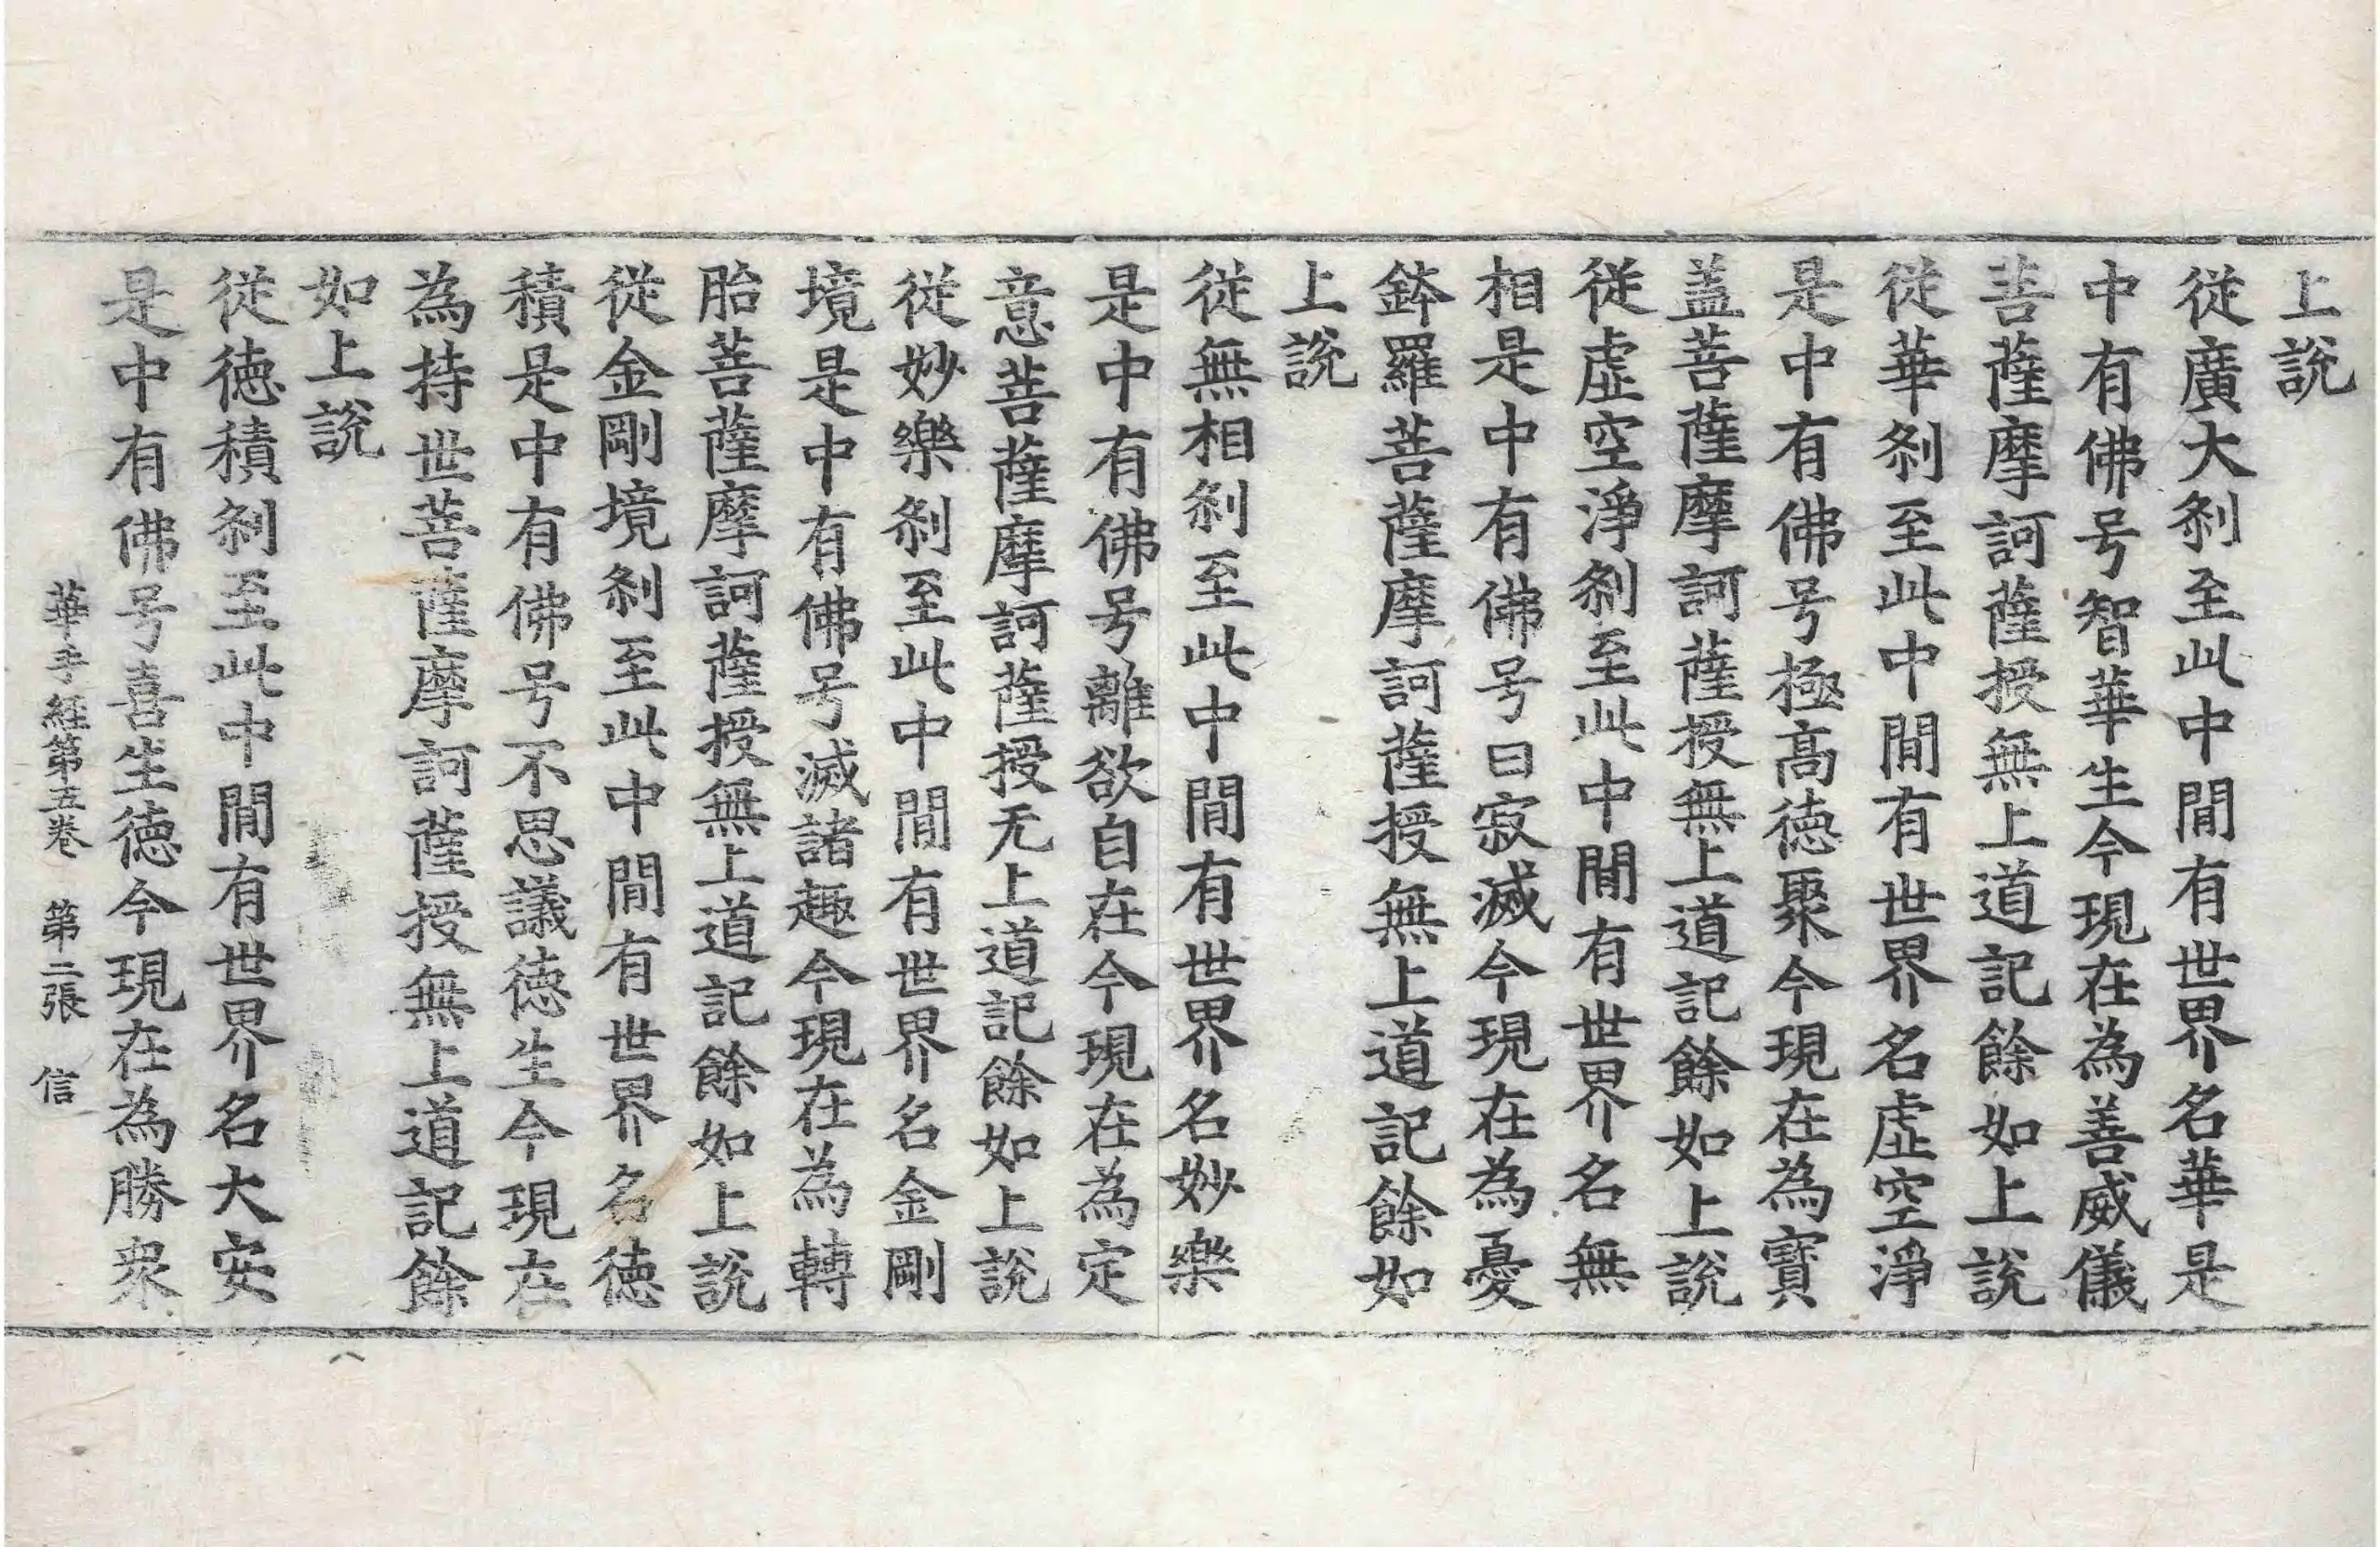 上說
從廣大刹至此中間有世界名華是
中有佛号智華生今現在為善威儀
菩薩摩訶薩授無上道記餘如上說
從華刹至此中間有世界名虛空淨
是中有佛号極高德聚今現在為寶
盖菩薩摩訶薩授無上道記餘如上說
從虛空淨刹至此中間有世界名無
相是中有佛号曰寂滅今現在為憂
鉢羅菩薩摩訶薩授無上道記餘如
上說
從無相刹至此中間有世界名妙樂
是中有佛号離欲自在今現在為定
意菩薩摩訶薩授无上道記餘如上說
從妙樂刹至此中間有世界名金剛
境是中有佛号滅諸趣今現在為轉
胎菩薩摩訶薩授無上道記餘如上說
從金剛境刹至此中間有世界名德
積是中有佛号不思議德生今現在
為持世菩薩摩訶薩授無上道記餘
如上說
從德積刹至此中間有世界名大安
是中有佛号喜生德今現在為勝衆
華手經第五卷 第二張 信